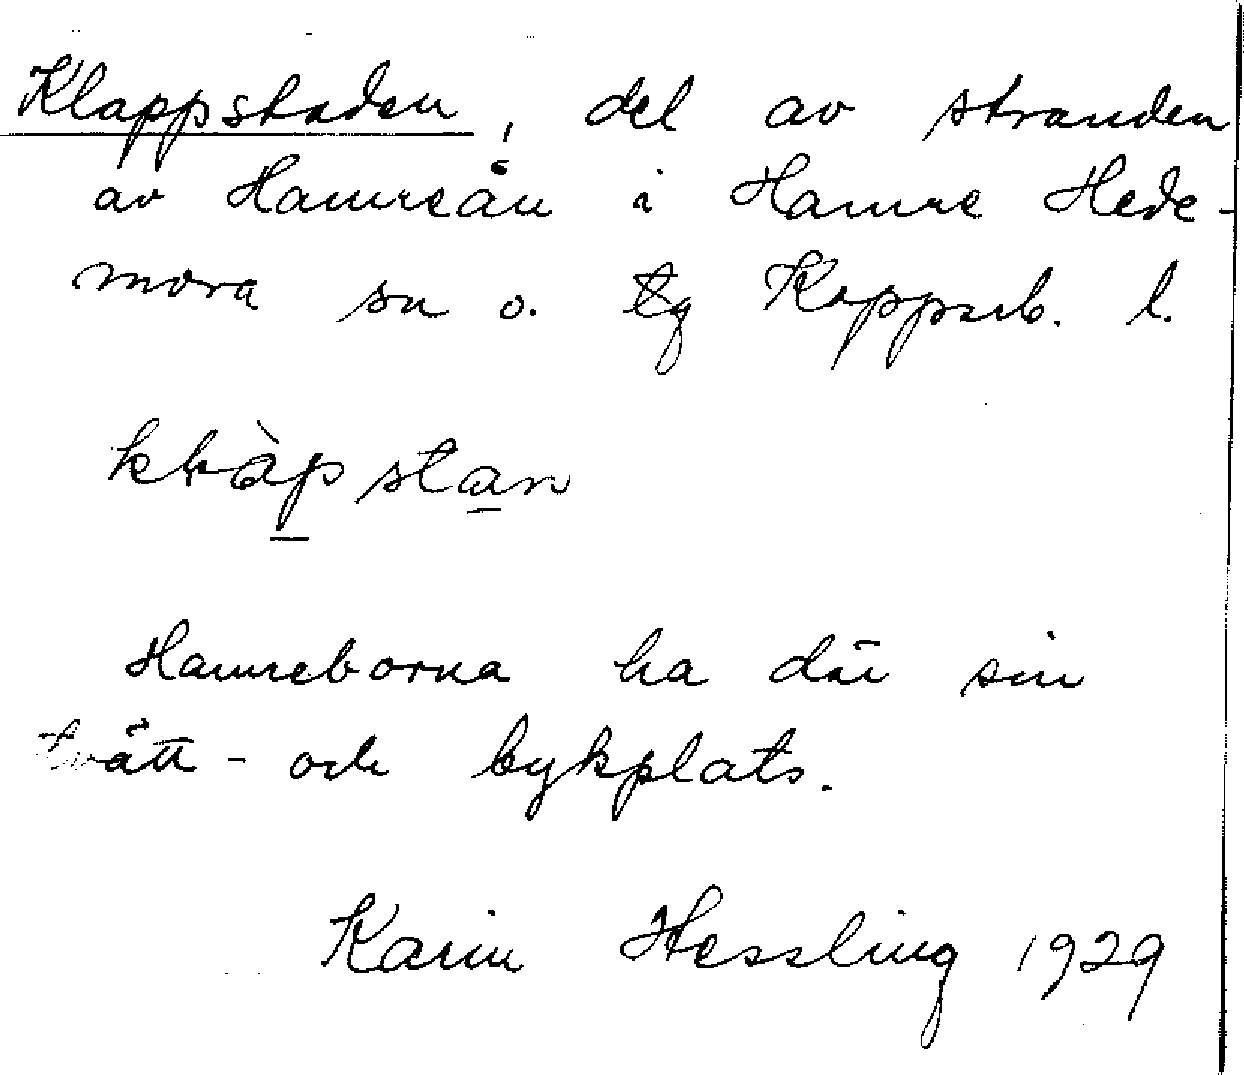 Klappstaden, del av stranden
av Hamreån i Hamre Hede-
mora sn o. tg Kopparb. l.
kḷàpstan
Hamreborna ha där sin
tvätt- och bykplats.
Karin Hessling 1929